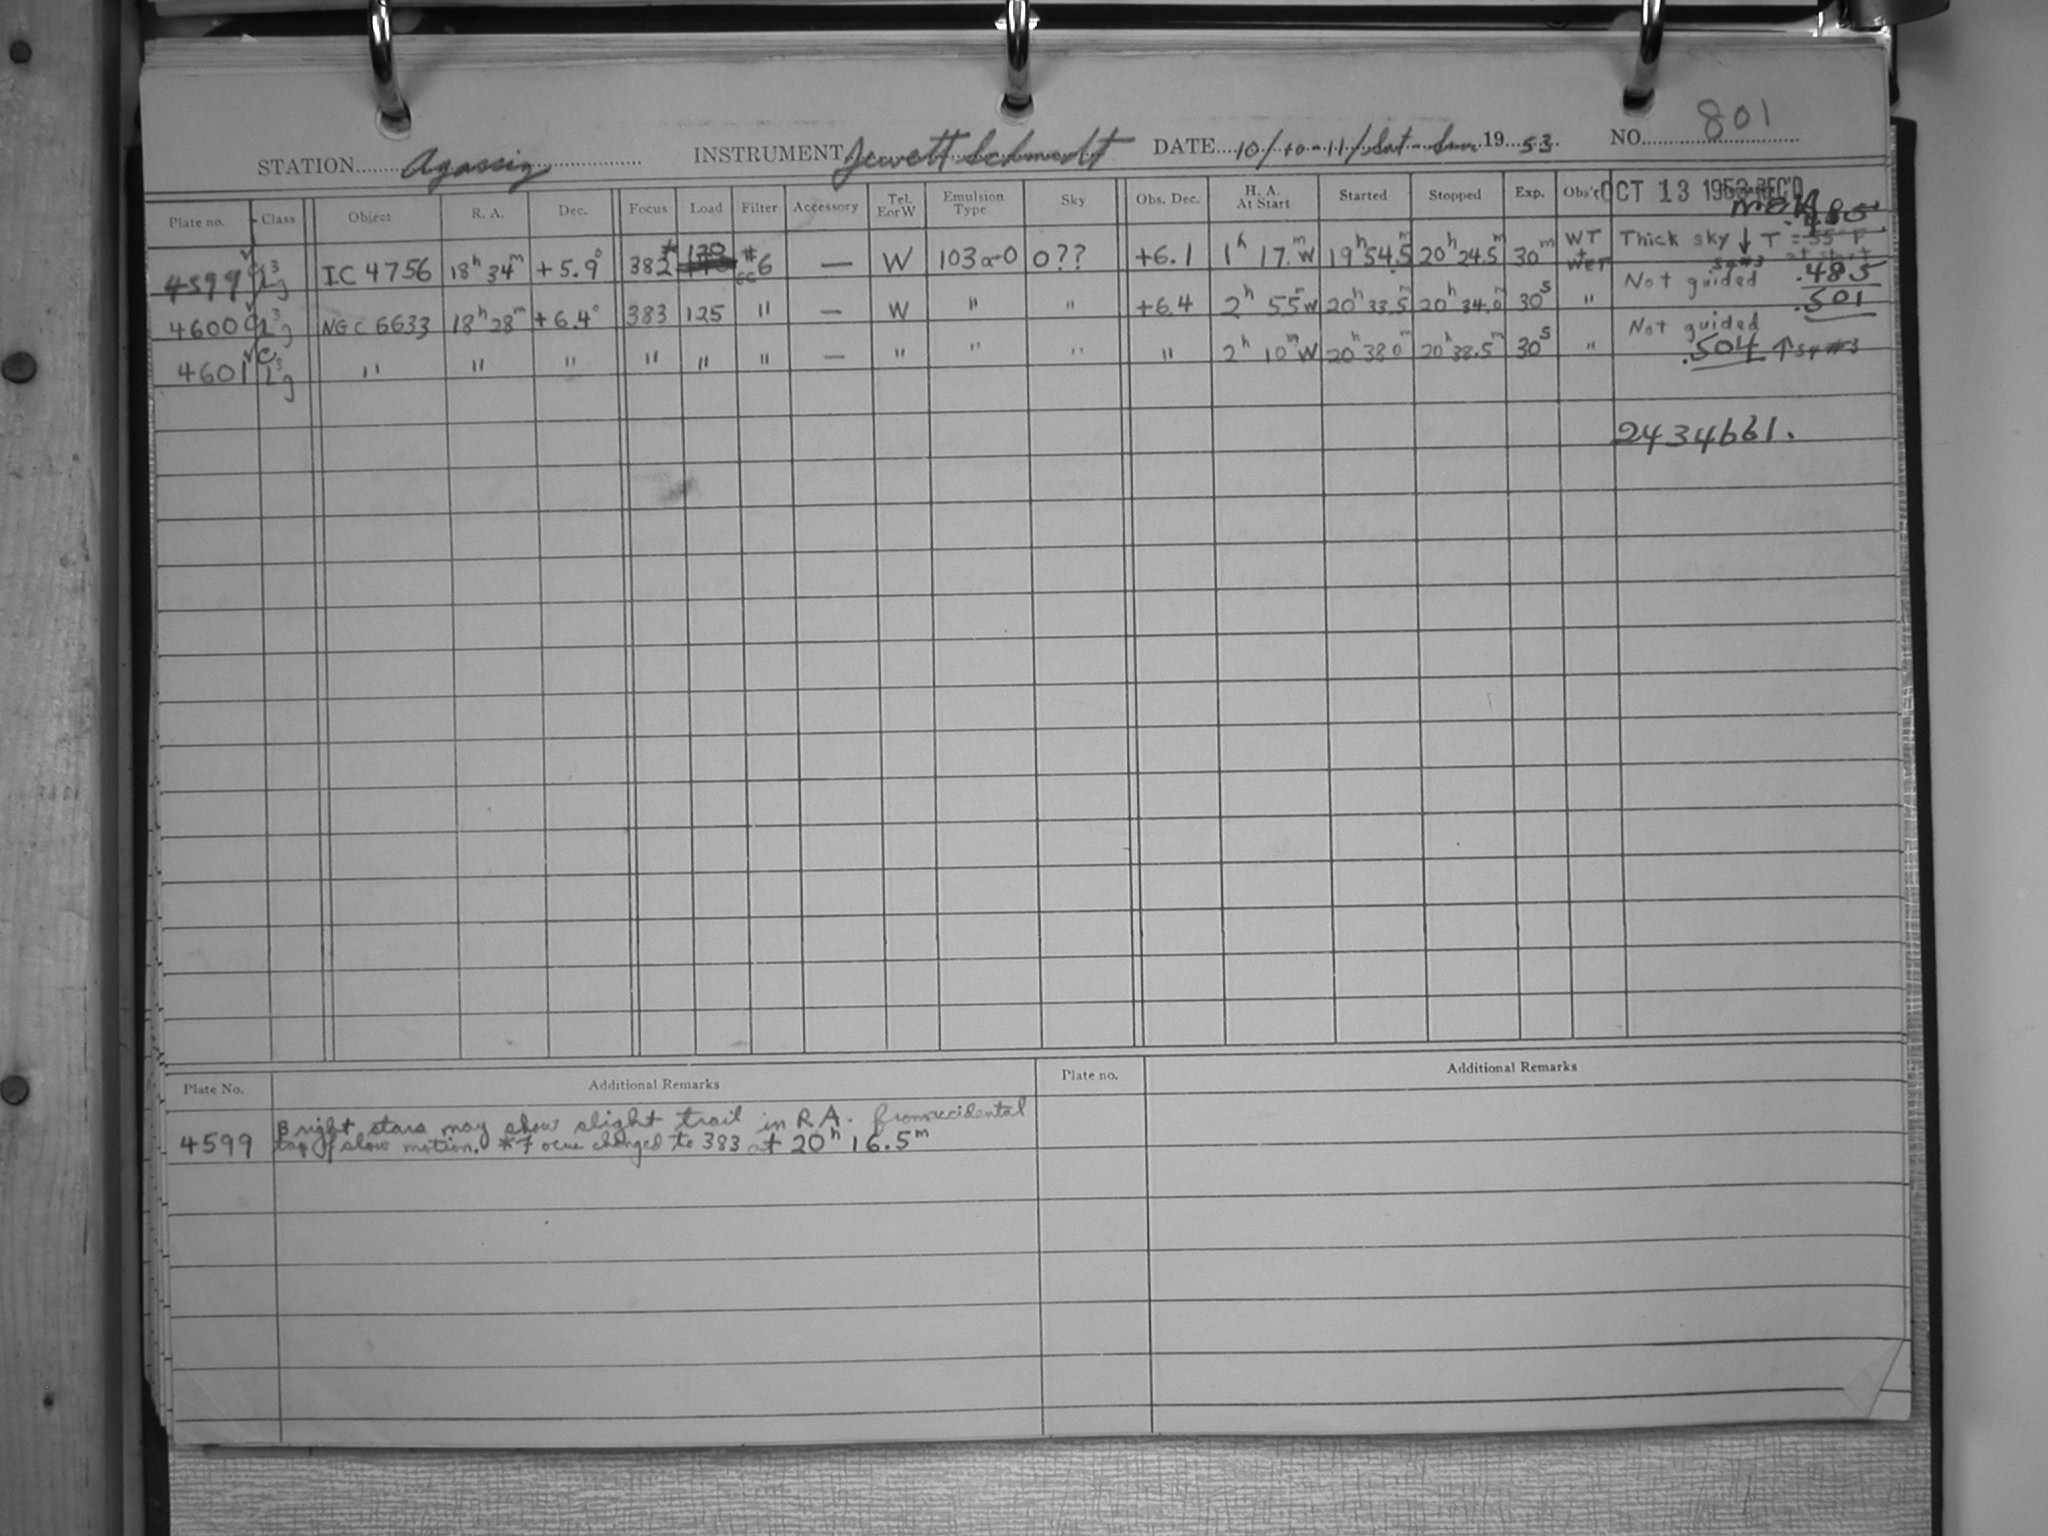 STATION Agassiz INSTRUMENT Jewett Schmidt DATE 10/10-11/Sat-Sun 19 53 NO. 801
OCT 13 1953 REC'D
Plate no. Class Object R. A. Dec. Focus Load Filter Accessory Tel. E or W Emulsion Type Sky Obs. Dec. H. A. At Start Started Stopped Exp. Obs'r
4599 IC 4756 18h 34m +5.9° 382* 130 #6 — W 103a-O 0?? +6.1 1h 17m W 19h 54.5m 20h 24.5m 30m WT + WET Thick sky ↓ T = 55°F at start
.485
4600 NGC 6633 18h 28m +6.4° 383 125 " — W " " +6.4 2h 55m W 20h 33.5m 20h 34.0m 30s " Not guided .501
4601 " " " " " " — " " " " 2h 10m W 20h 38.0m 20h 38.5m 30s " Not guided
.504 ↑ sq #3
2434661.
Plate No. Additional Remarks Plate no. Additional Remarks
Bright stars may show slight trail in R.A. from accidental
4599 tap of slow motion. *Focus changed to 383 at 20h 16.5m